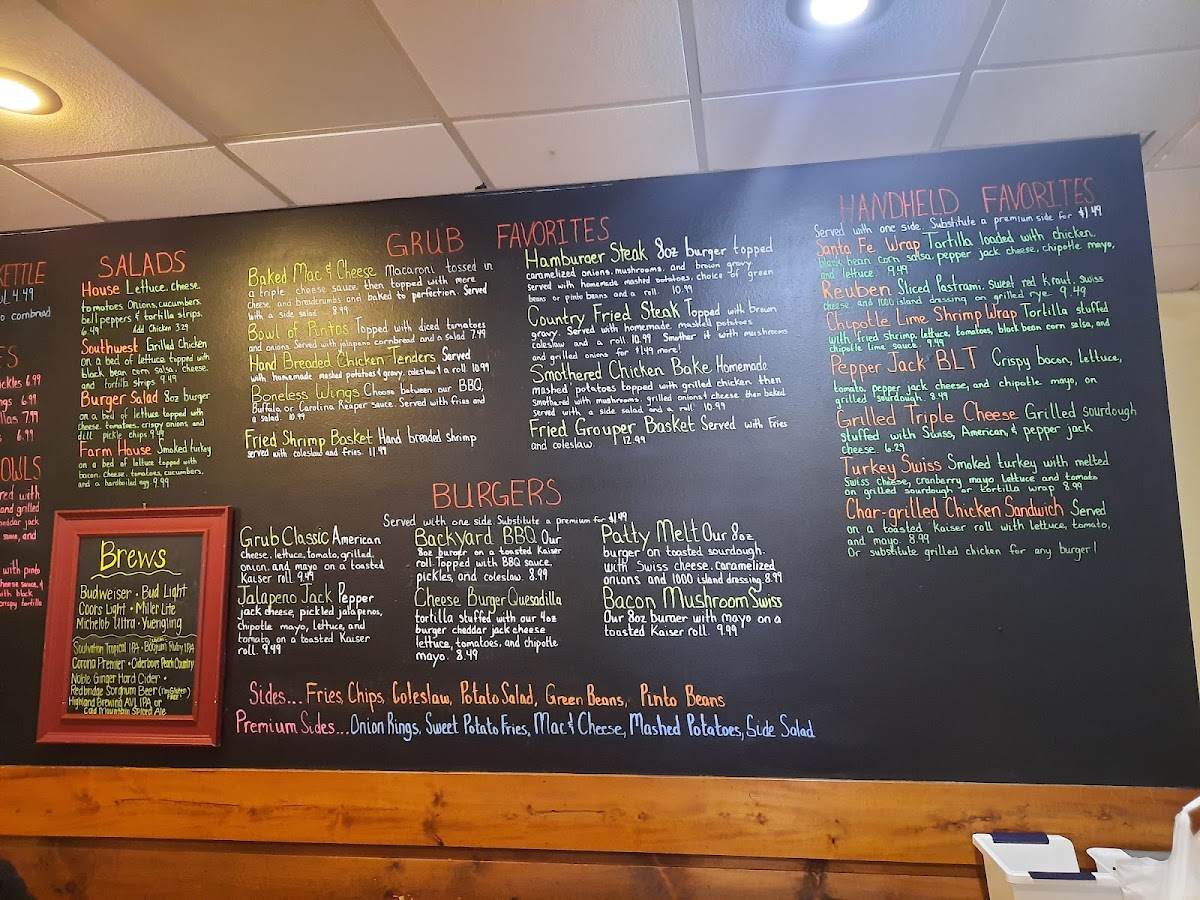 KETTLE
4.49
cornbread
ickles 6.99
ngs 6.99
llas 7.99
6.99
OWLS
red with
and grilled
cheddar jack
sauce, and
with pinto
cheese sauce, &
with black
crispy tortilla
SALADS
House Lettuce, cheese,
tomatoes, Onions, cucumbers,
bell peppers & tortilla strips.
6.49 Add Chicken 3.29
Southwest Grilled Chicken
on a bed of lettuce topped with
black bean corn salsa, cheese,
and tortilla strips 9.49
Burger Salad 8oz burger
on a bed of lettuce topped with
cheese, tomatoes, crispy onions, and
dill pickle chips 9.49
Farm House Smoked turkey
on a bed of lettuce topped with
bacon, cheese, tomatoes, cucumbers,
and a hardboiled egg. 9.99
Brews
Budweiser • Bud Light
Coors Light • Miller Lite
Michelob Ultra • Yuengling
Soulvation Tropical IPA • Bogum Ruby IPA
Corona Premier • Ciderboys Peach Country
Noble Ginger Hard Cider •
Redbridge Sorghum Beer (I'm Gluten FREE!)
Highland Brewing AVL IPA or
Cold Mountain Spiced Ale
GRUB FAVORITES
Baked Mac & Cheese Macaroni tossed in
a triple cheese sauce then topped with more
cheese, and breadcrumbs and baked to perfection. Served
with a side salad 8.99
Bowl of Pintos Topped with diced tomatoes
and onions Served with jalapeno cornbread and a salad 7.49
Hand Breaded Chicken Tenders Served
with homemade mashed potatoes & gravy, coleslaw & a roll 10.99
Boneless Wings Choose between our BBQ,
Buffalo, or Carolina Reaper sauce. Served with fries and
a salad 10.99
Fried Shrimp Basket Hand breaded shrimp
served with coleslaw and fries. 11.99
Hamburger Steak 8oz burger topped
caramelized onions, mushrooms, and brown gravy
Served with homemade mashed potatoes, choice of green
beans or pinto beans and a roll. 10.99
Country Fried Steak Topped with brown
gravy. Served with homemade mashed potatoes
coleslaw and a roll 10.99 Smother it with mushrooms
and grilled onions for $1.49 more!
Smothered Chicken Bake Homemade
mashed potatoes topped with grilled chicken then
smothered with mushrooms, grilled onions & cheese then baked
served with a side salad and a roll 10.99
Fried Grouper Basket Served with Fries
and coleslaw. 12.99
BURGERS
Served with one side Substitute a premium for $1.49
Grub Classic American
cheese, lettuce, tomato, grilled,
onion, and mayo on a toasted
Kaiser roll. 9.49
Jalapeno Jack Pepper
jack cheese, pickled jalapenos,
chipotle mayo, lettuce, and
tomato on a toasted Kaiser
roll. 9.49
Backyard BBQ Our
8oz burger on a toasted Kaiser
roll Topped with BBQ sauce,
pickles, and coleslaw. 8.99
Cheese Burger Quesadilla
tortilla stuffed with our 4oz
burger cheddar jack cheese
lettuce, tomatoes, and chipotle
mayo. 8.49
Patty Melt Our 8oz
burger on toasted sourdough
with Swiss cheese, caramelized
onions, and 1000 island dressing. 8.99
Bacon Mushroom Swiss
Our 8oz burger with mayo on a
toasted Kaiser roll. 9.99
Sides... Fries, Chips, Coleslaw, Potato Salad, Green Beans, Pinto Beans
Premium Sides... Onion Rings, Sweet Potato Fries, Mac & Cheese, Mashed Potatoes, Side Salad
HANDHELD FAVORITES
Served with one side. Substitute a premium side for $1.49
Santa Fe Wrap Tortilla loaded with chicken,
black bean corn salsa, pepper jack cheese, chipotle mayo,
and lettuce. 9.49
Reuben Sliced Pastrami, sweet red kraut, swiss
cheese, and 1000 island dressing on grilled rye. 9.49
Chipotle Lime Shrimp Wrap Tortilla stuffed
with fried shrimp, lettuce, tomatoes, black bean corn salsa, and
chipotle lime sauce. 9.49
Pepper Jack BLT Crispy bacon, lettuce,
tomato, pepper jack cheese, and chipotle mayo, on
grilled sourdough. 8.49
Grilled Triple Cheese Grilled sourdough
stuffed with Swiss, American, & pepper jack
cheese. 6.29
Turkey Swiss Smoked turkey with melted
Swiss cheese, cranberry mayo lettuce and tomato
on grilled sourdough or tortilla wrap 8.99
Char-grilled Chicken Sandwich Served
on a toasted Kaiser roll with lettuce, tomato,
and mayo. 8.99
Or substitute grilled chicken for any burger!